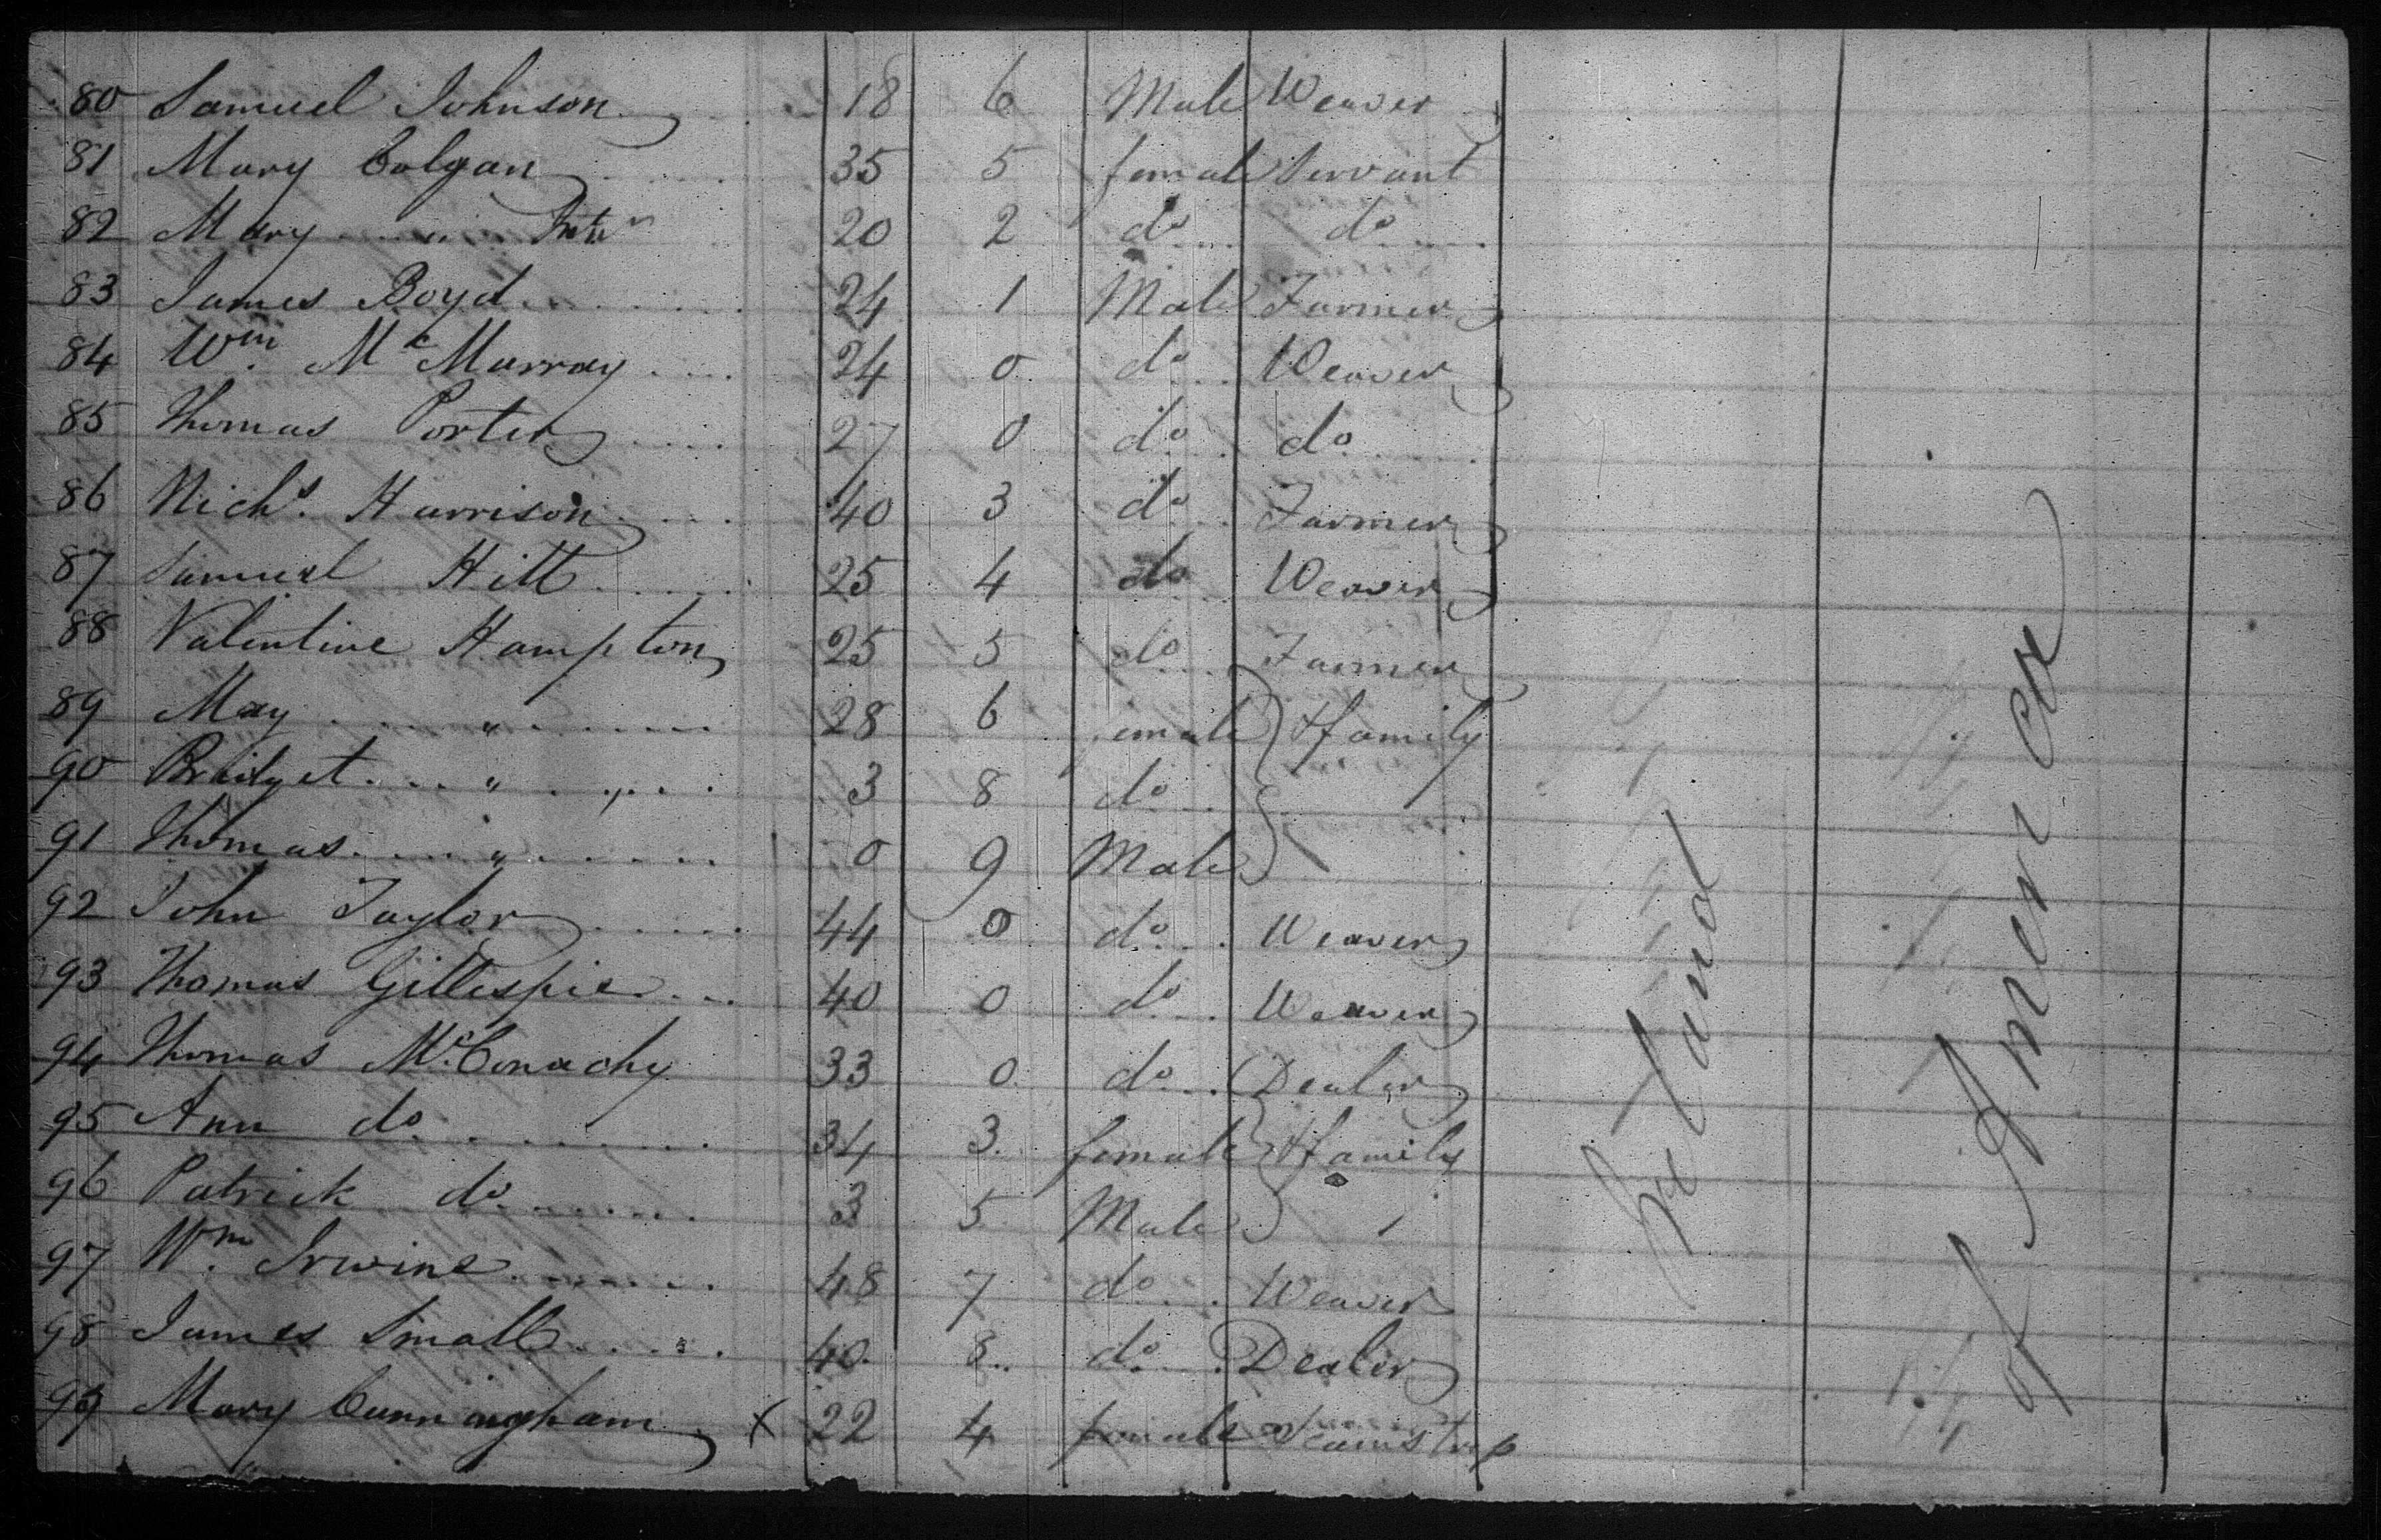 80 Samuel Johnson 18 6 Male Weaver
81 Mary Colgan 35 5 female Servant
82 Mary " 20 2 do do
83 James Boyd 24 1 Male Farmer
84 Wm McMurray 24 0 do Weaver
85 Thomas Porter 27 0 do do
86 Nichs Harrison 40 3 do Farmer
87 Samuel Hill 25 4 do Weaver
88 Valentine Hampton 25 5 do Farmer
89 May " 28 6 female family
90 Bridget " 3 8 do
91 Thomas " 0 9 Male
92 John Taylor 44 0 do Weaver
93 Thomas Gillespie 40 0 do Weaver
94 Thomas McConachy 33 0 do Dealer
95 Ann do 34 3 female family
96 Patrick do 3 5 Male
97 Wm Irwine 48 7 do Weaver
98 James Small 40 8 do Dealer
99 Mary Cunningham X 22 4 female Seamstress
Ireland
of America